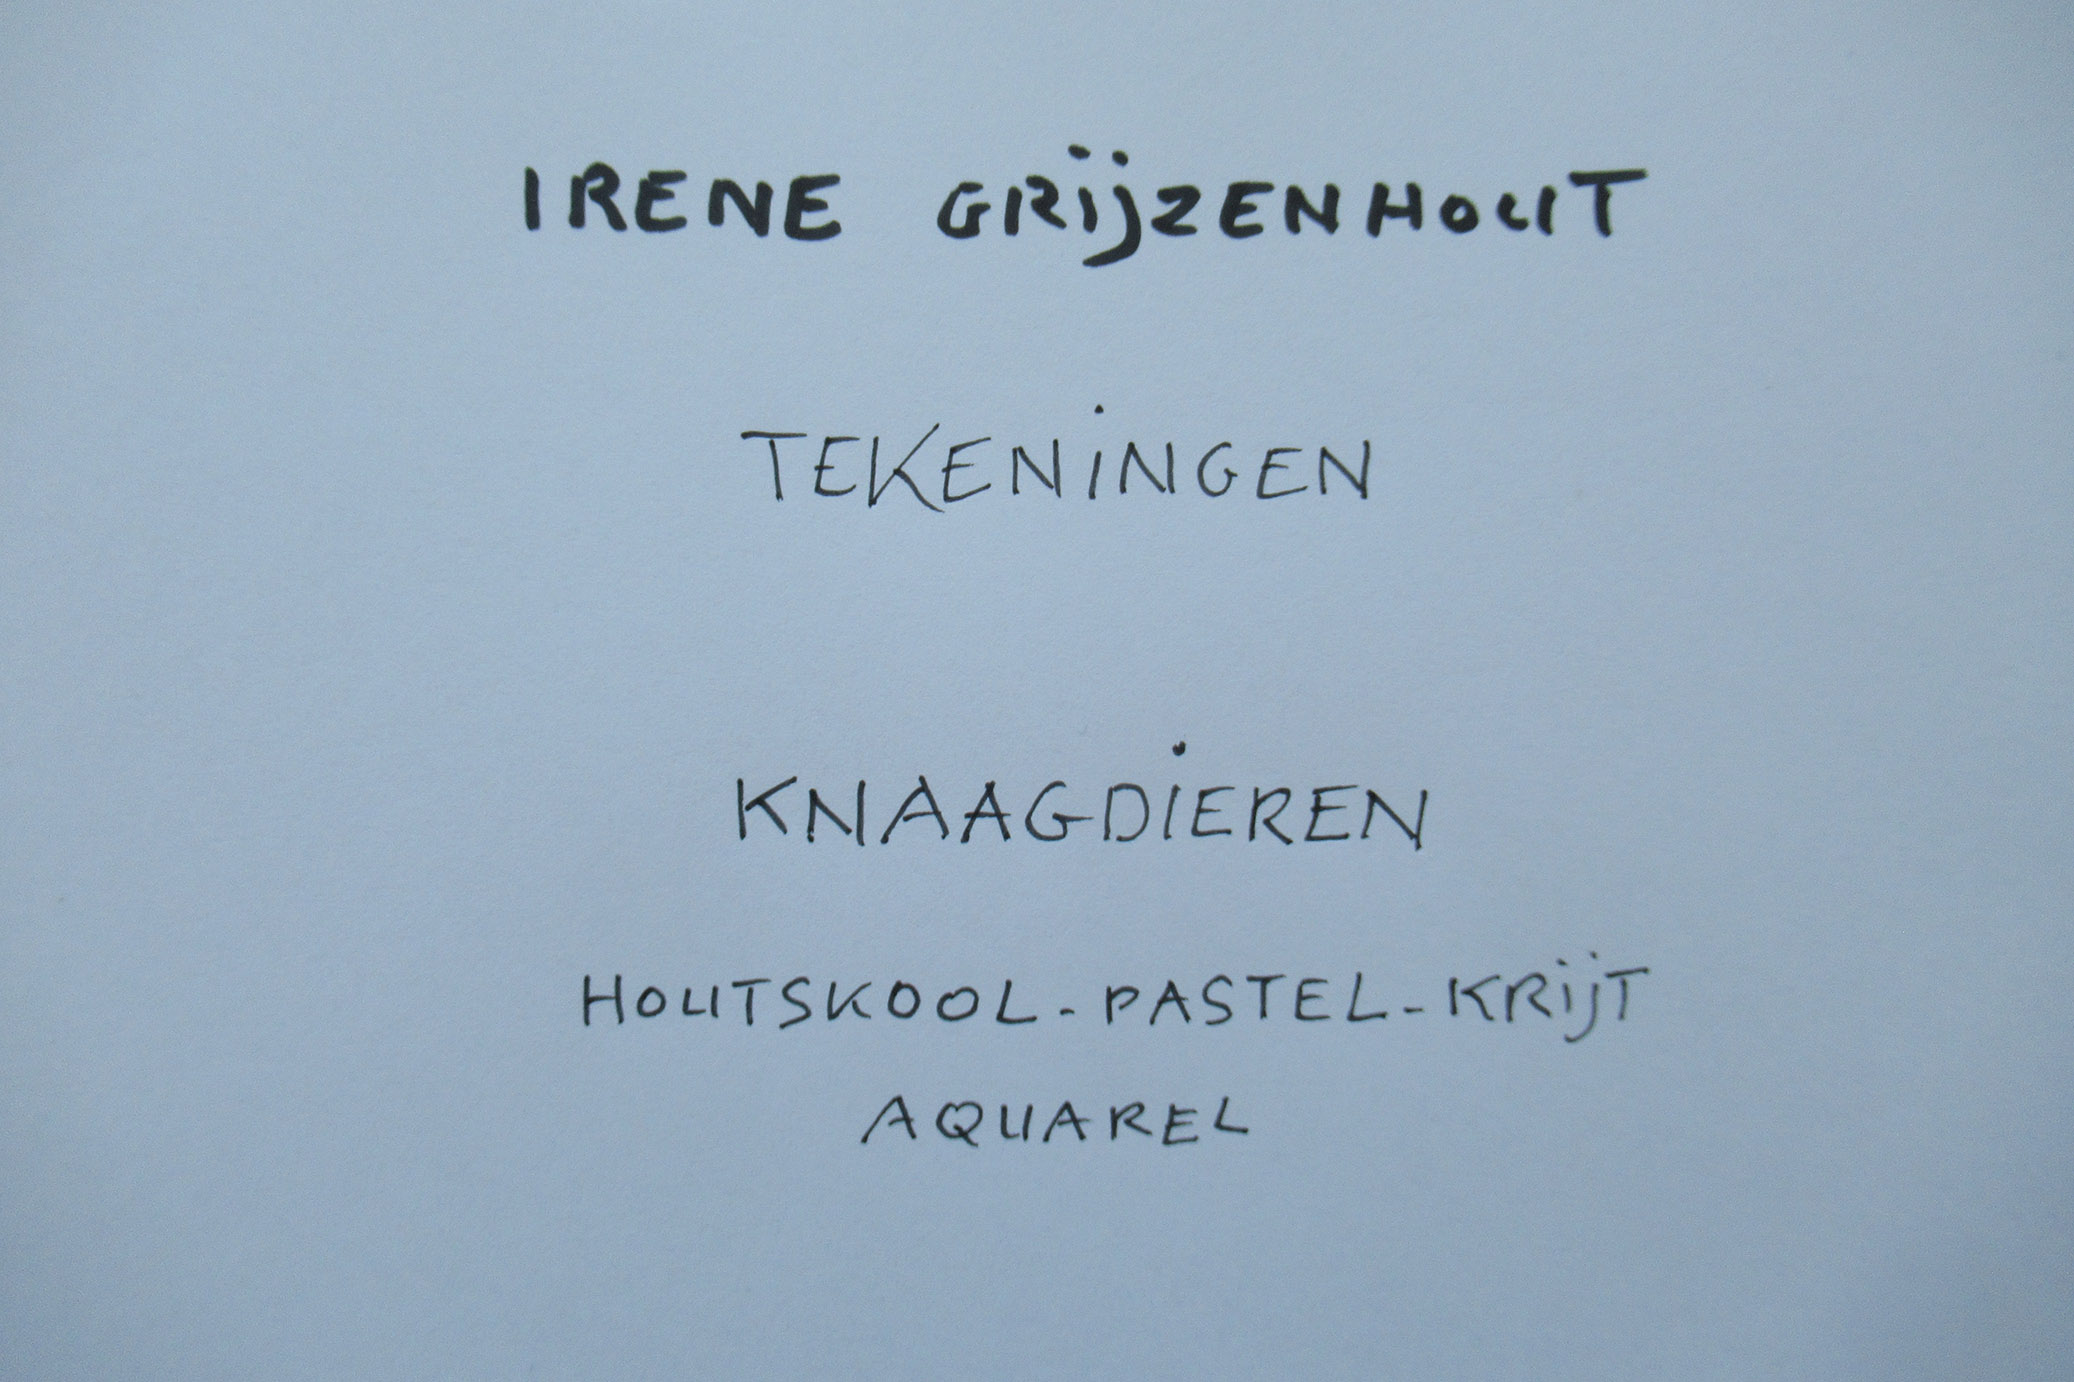 IRENE GRIJZENHOUT
TEKENINGEN
KNAAGDIEREN
HOUTSKOOL - PASTEL - KRIJT
AQUAREL